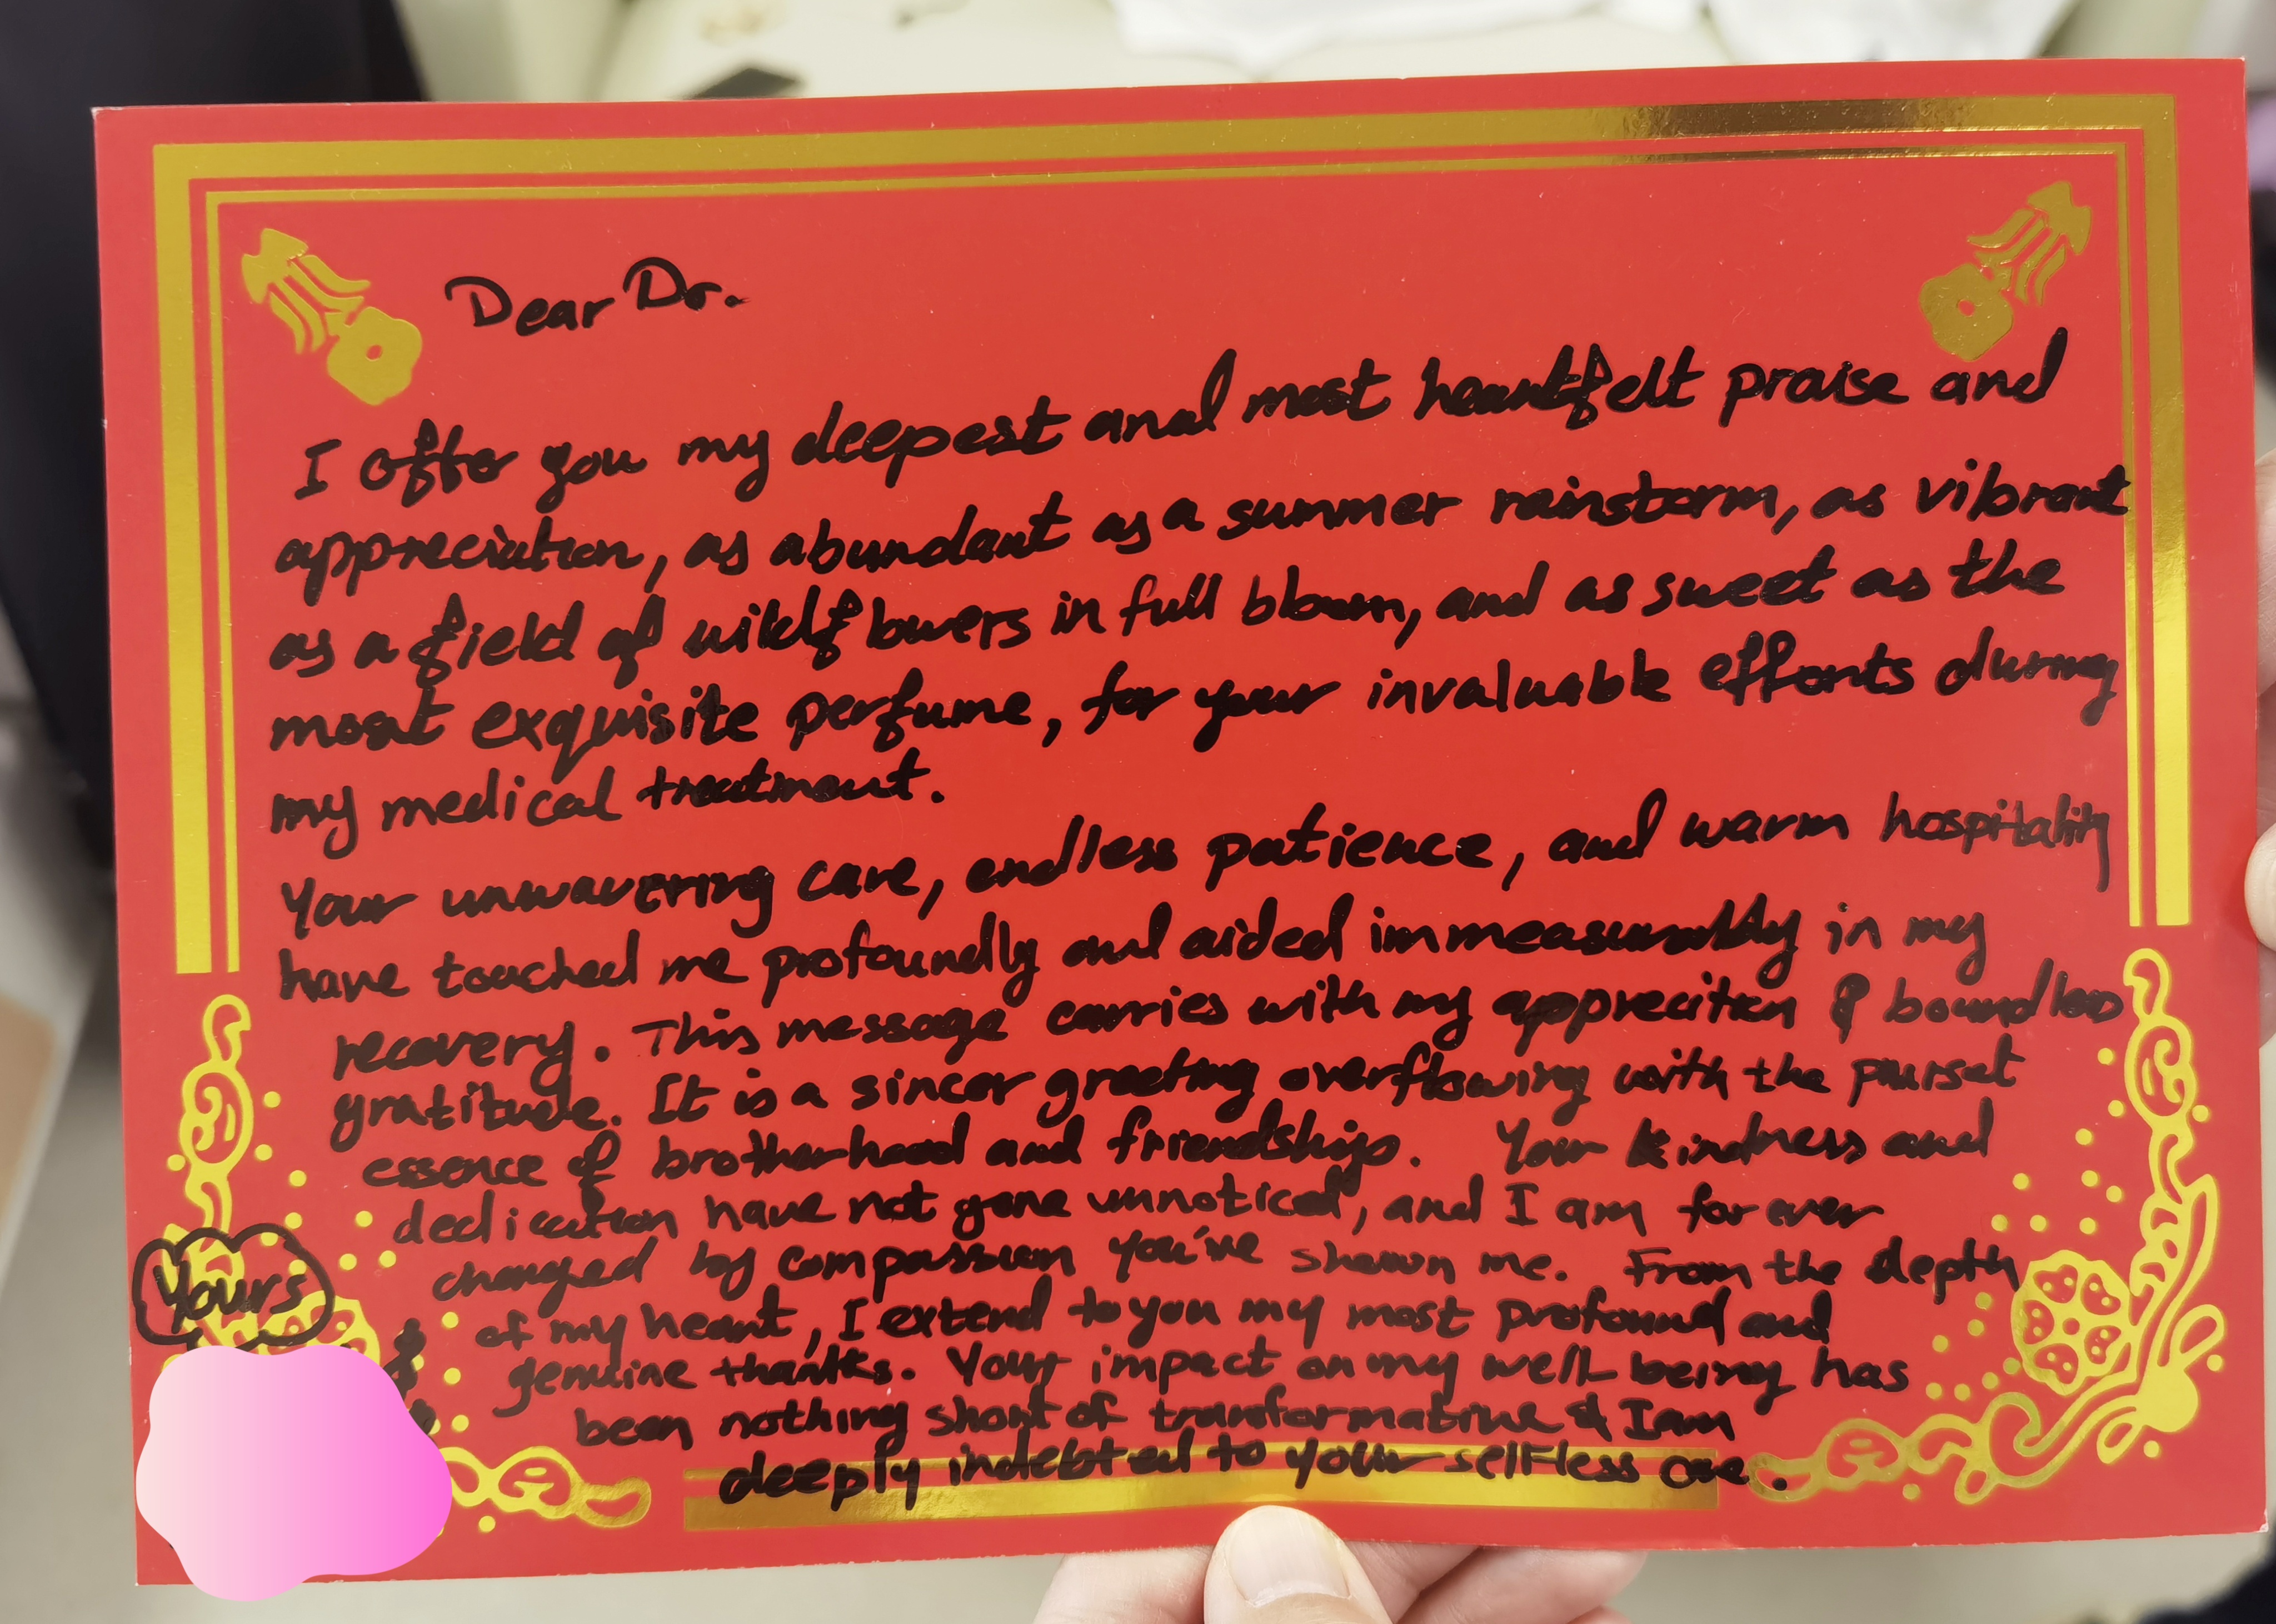 Dear Dr.
I offer you my deepest and most heartfelt praise and
appreciation, as abundant as a summer rainstorm, as vibrant
as a field of wildflowers in full bloom, and as sweet as the
most exquisite perfume, for your invaluable efforts during
my medical treatment.
Your unwavering care, endless patience, and warm hospitality
have touched me profoundly and aided immeasurably in my
recovery. This message carries with my appreciation & boundless
gratitude. It is a sincer greeting overflowing with the purset
essence of brotherhood and friendship. Your kindness and
dedication have not gone unnoticed, and I am for ever
changed by compassion you've shown me. From the depth
of my heart, I extend to you my most profound and
genuine thanks. Your impact on my well being has
been nothing short of transformative & I am
deeply indebted to your selfless care.
Yours